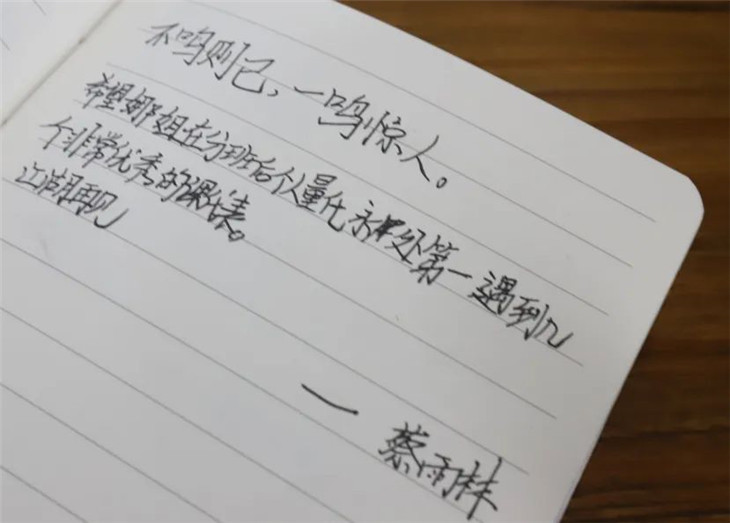 不鸣则已，一鸣惊人。
希望娜姐在分班后个人量化永处第一遇到几
个非常优秀的课代表。
江湖再见
— 蔡雨林